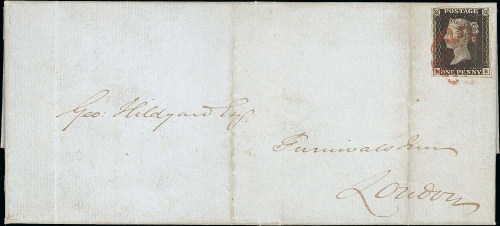 POSTAGE
ONE PENNY
Geo: Hildyard Esq.
Furnivals Inn
London